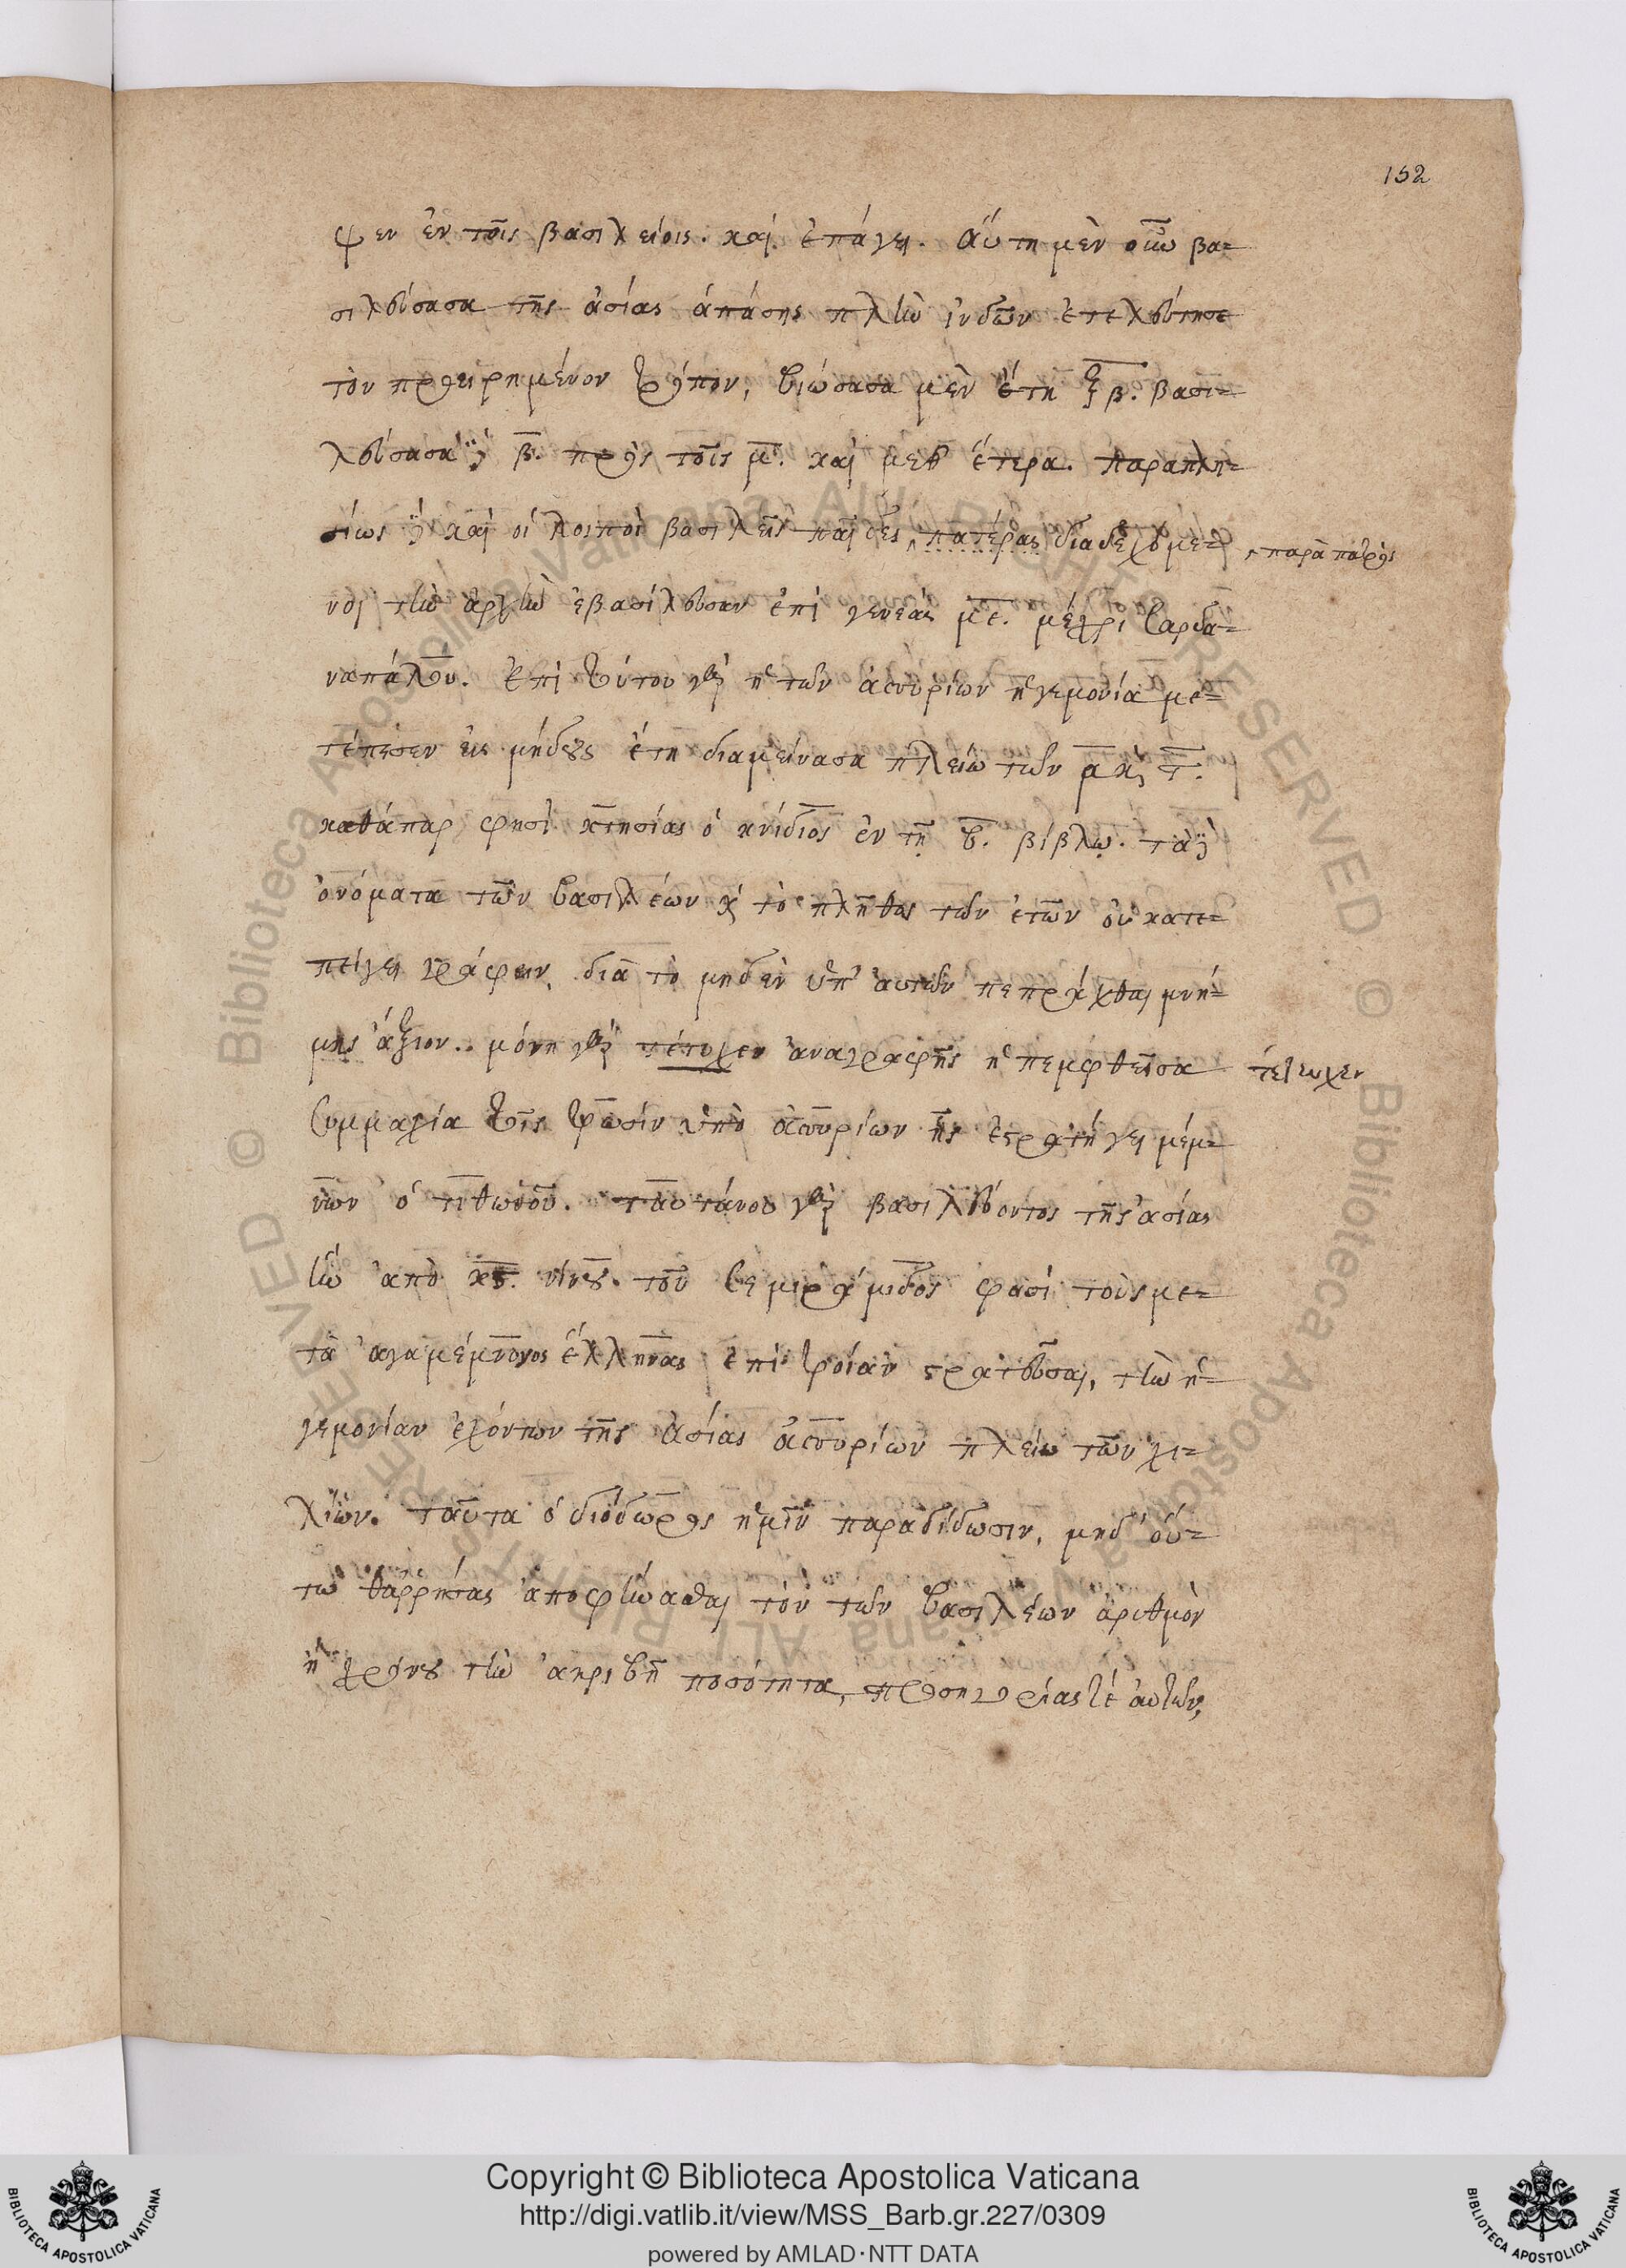 152
ψεν ἐν τοῖς βασιλείοις. καὶ ἐπάγει. Αὕτη μὲν οὖν βα-
σιλεύσασα τῆς ἀσίας ἁπάσης πλὴν ἰνδῶν ἐτελεύτησε
τὸν προειρημένον τρόπον, βιώσασα μὲν ἔτη ξβ. βασι-
λεύσασα δὲ β. πρὸς τοῖς μ. καὶ μεθ' ἕτερα. Παραπλη-
σίως δὲ καὶ οἱ λοιποὶ βασιλεῖς παῖδες πατέρας διαδεχόμε- παρὰ πατρὸς
νοι τὴν ἀρχὴν ἐβασίλευσαν ἐπὶ γενεὰς με. μέχρι Σαρδα-
ναπάλου. Ἐπὶ τούτου γὰρ ἡ τῶν ἀσσυρίων ἡγεμονία με-
τέπεσεν εἰς μήδους ἔτη διαμείνασα πλείω τῶν α καὶ τ.
καθάπερ φησὶ κτησίας ὁ κνίδιος ἐν τῇ β. βίβλῳ. τὰ δὲ
ὀνόματα τῶν βασιλέων καὶ τὸ πλῆθος τῶν ἐτῶν οὐ κατε-
πείγει γράφειν, διὰ τὸ μηδὲν ὑπ' αὐτῶν πεπρᾶχθαι μνή-
μης ἄξιον. μόνη γὰρ τέτυχεν ἀναγραφῆς ἡ πεμφθεῖσα τέτευχεν
Συμμαχία τοῖς τρωσὶν ὑπὸ ἀσσυρίων ἧς ἐστρατήγει μέμ-
νων ὁ τιθωνοῦ. ταυτάνου γὰρ βασιλεύοντος τῆς ἀσίας
ἦν ἀπὸ κς. νίνου. τοῦ Σεμιράμιδος φασὶ τοὺς με-
τὰ ἀγαμέμνονος ἕλληνας ἐπὶ τροίαν στρατεῦσαι, τὴν ἡ-
γεμονίαν ἐχόντων τῆς Ἀσίας ἀσσυρίων πλείω τῶν χι-
λίων. ταῦτα ὁ διόδωρος ἡμῖν παραδίδωσιν, μηδ' οὕ-
τω θαρρήσας ἀποφήνασθαι τὸν τῶν βασιλέων ἀριθμὸν
ἢ χρόνου τὴν ἀκριβῆ ποσότητα, προσηγορίας τὲ αὐτῶν,
Copyright © Biblioteca Apostolica Vaticana
http://digi.vatlib.it/view/MSS_Barb.gr.227/0309
powered by AMLAD·NTT DATA